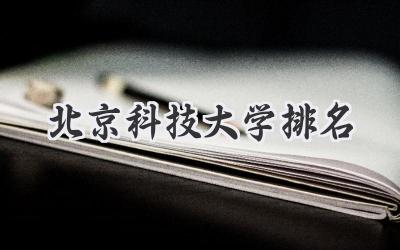 北京科技大学排名